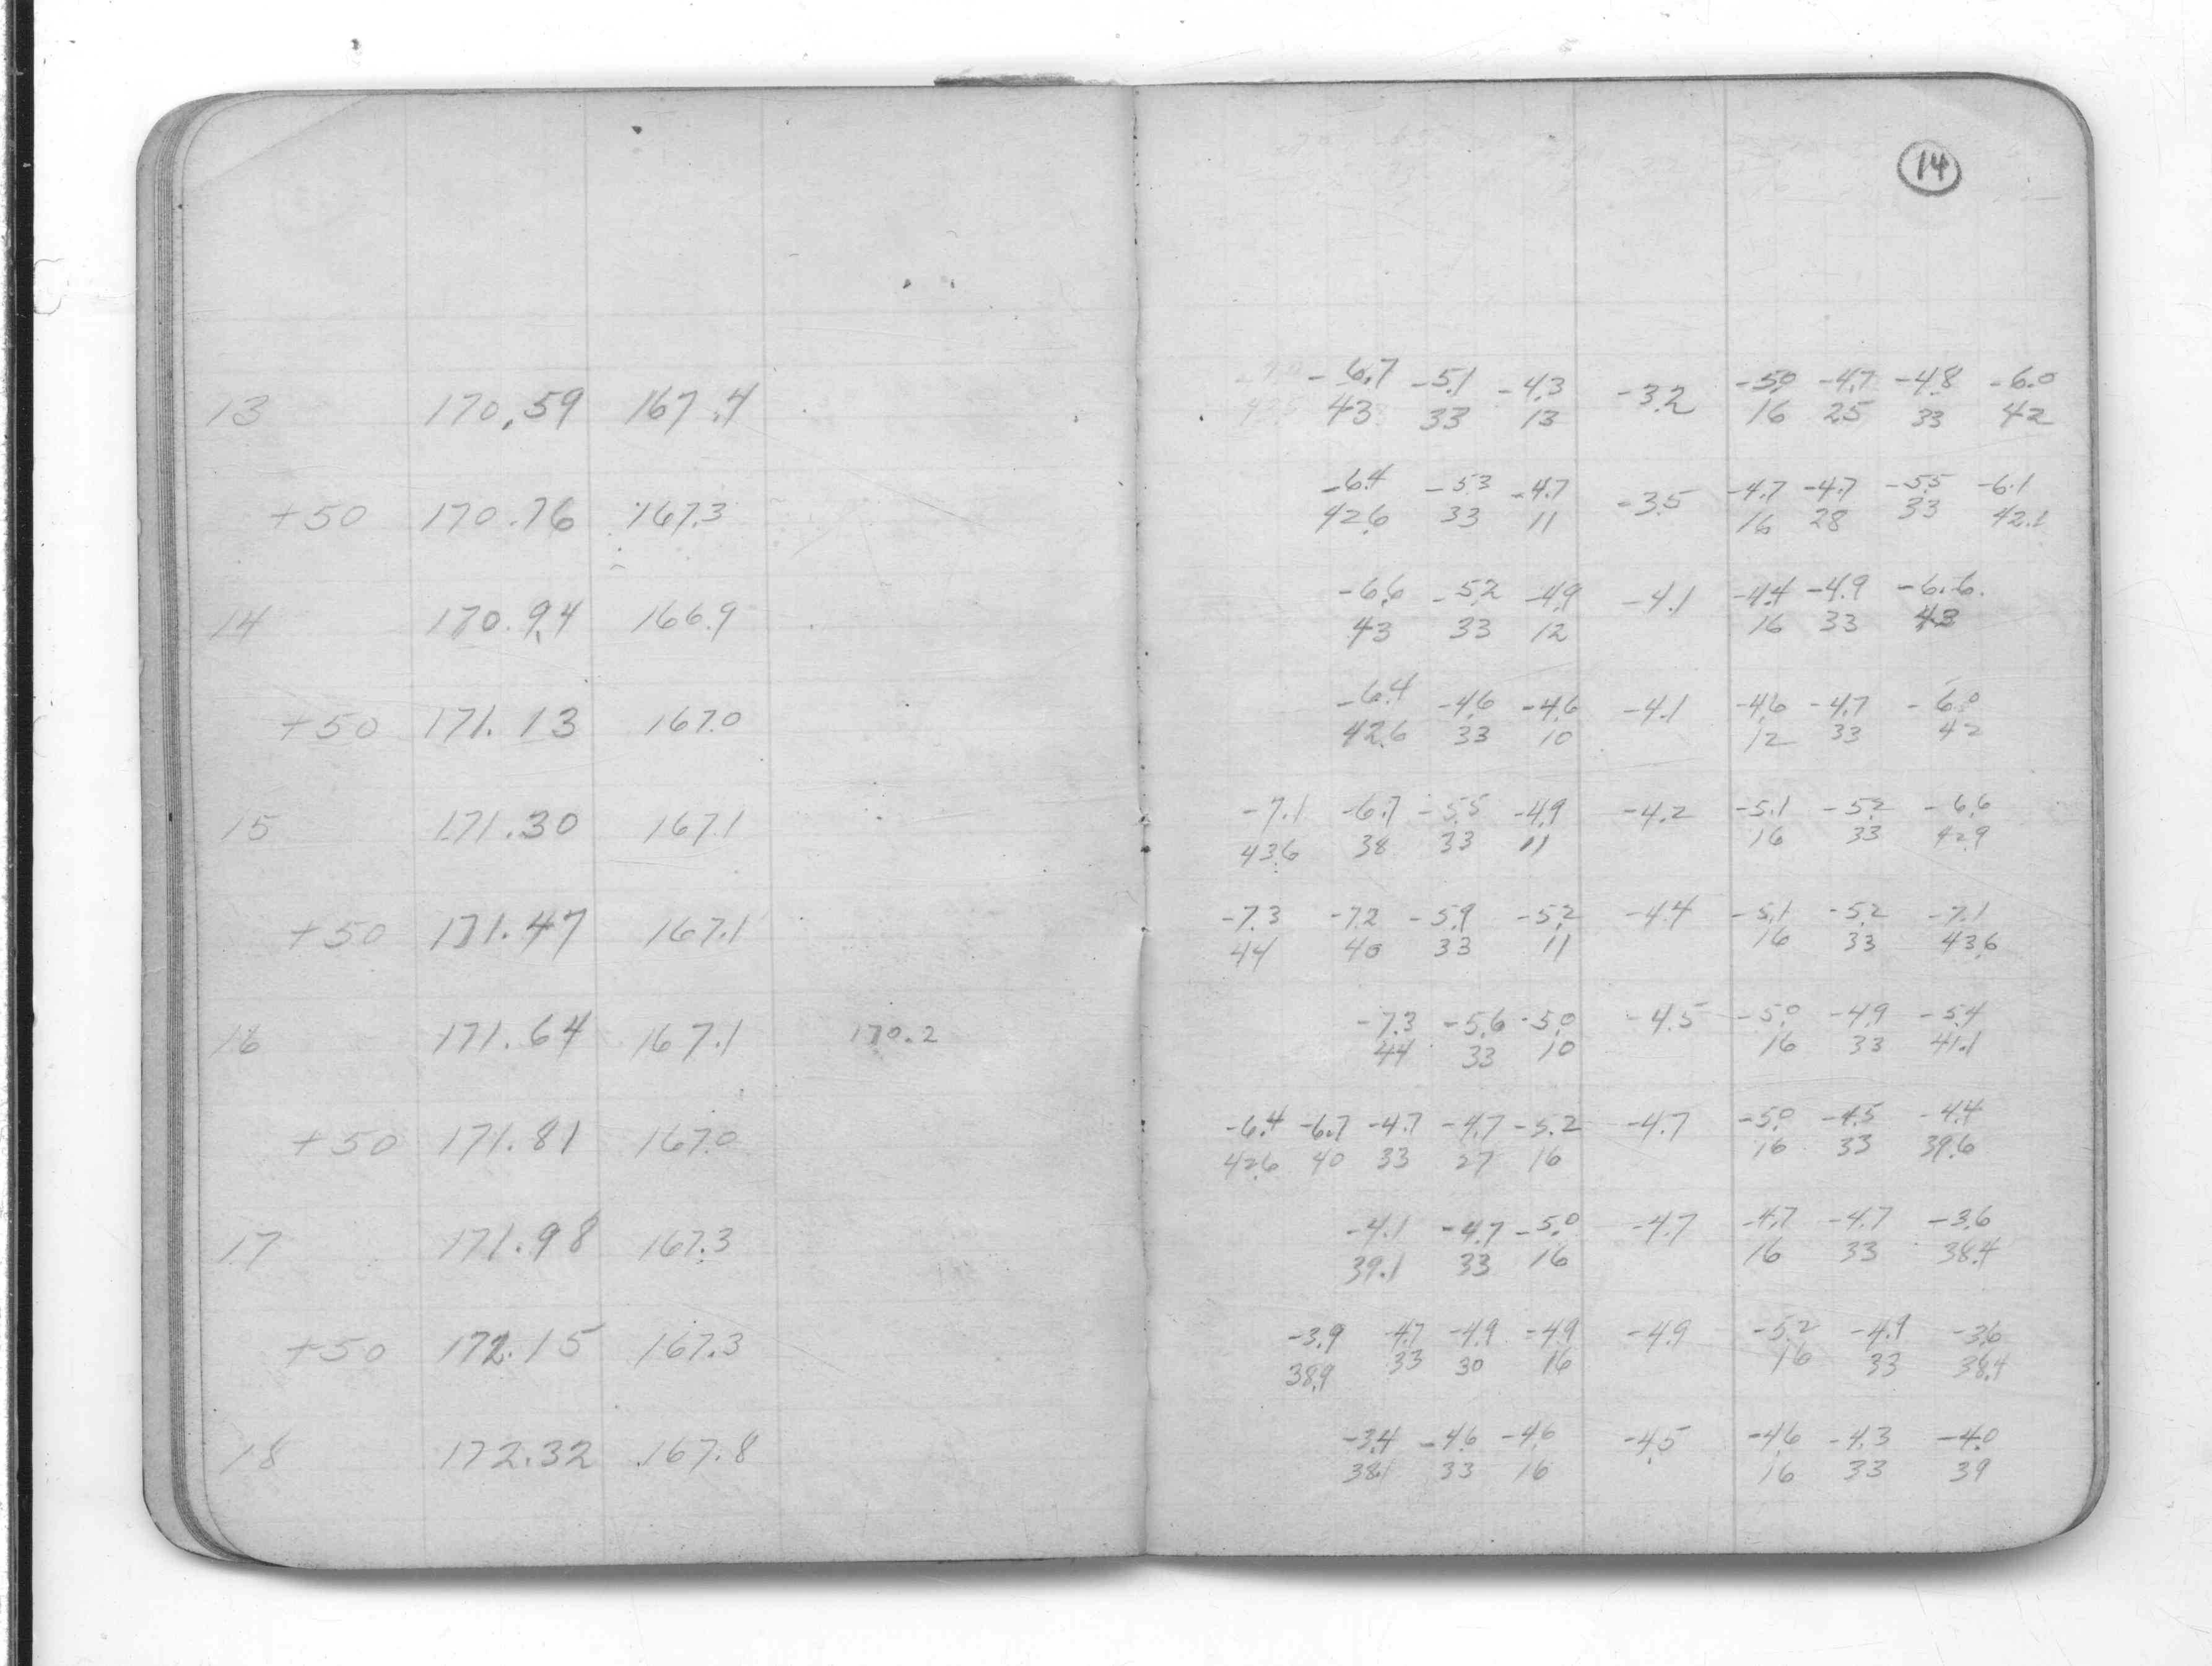 14
13 170.59 167.4
-6.7 -5.1 -4.3 -3.2 -5.0 -4.7 -4.8 -6.0
43 33 13 16 25 33 42
+50 170.76 167.3
-6.4 -5.3 -4.7 -3.5 -4.7 -4.7 -5.5 -6.1
42.6 33 11 16 28 33 42.1
14 170.94 166.9
-6.6 -5.2 -4.9 -4.1 -4.4 -4.9 -6.6
43 33 12 16 33 43
+50 171.13 167.0
-6.4 -4.6 -4.6 -4.1 -4.6 -4.7 -6.0
42.6 33 10 12 33 42
15 171.30 167.1
-7.1 -6.7 -5.5 -4.9 -4.2 -5.1 -5.2 -6.6
43.6 38 33 11 16 33 42.9
+50 171.47 167.1
-7.3 -7.2 -5.9 -5.2 -4.4 -5.1 -5.2 -7.1
44 40 33 11 16 33 43.6
16 171.64 167.1 170.2
-7.3 -5.6 -5.0 -4.5 -5.0 -4.9 -5.4
44 33 10 16 33 41.1
+50 171.81 167.0
-6.4 -6.7 -4.7 -4.7 -5.2 -4.7 -5.0 -4.5 -4.4
42.6 40 33 27 16 16 33 39.6
17 171.98 167.3
-4.1 -4.7 -5.0 -4.7 -4.7 -4.7 -3.6
39.1 33 16 16 33 38.4
+50 172.15 167.3
-3.9 -4.7 -4.9 -4.9 -4.9 -5.2 -4.9 -3.6
38.9 33 30 16 16 33 38.4
18 172.32 167.8
-3.4 -4.6 -4.6 -4.5 -4.6 -4.3 -4.0
38.1 33 16 16 33 39